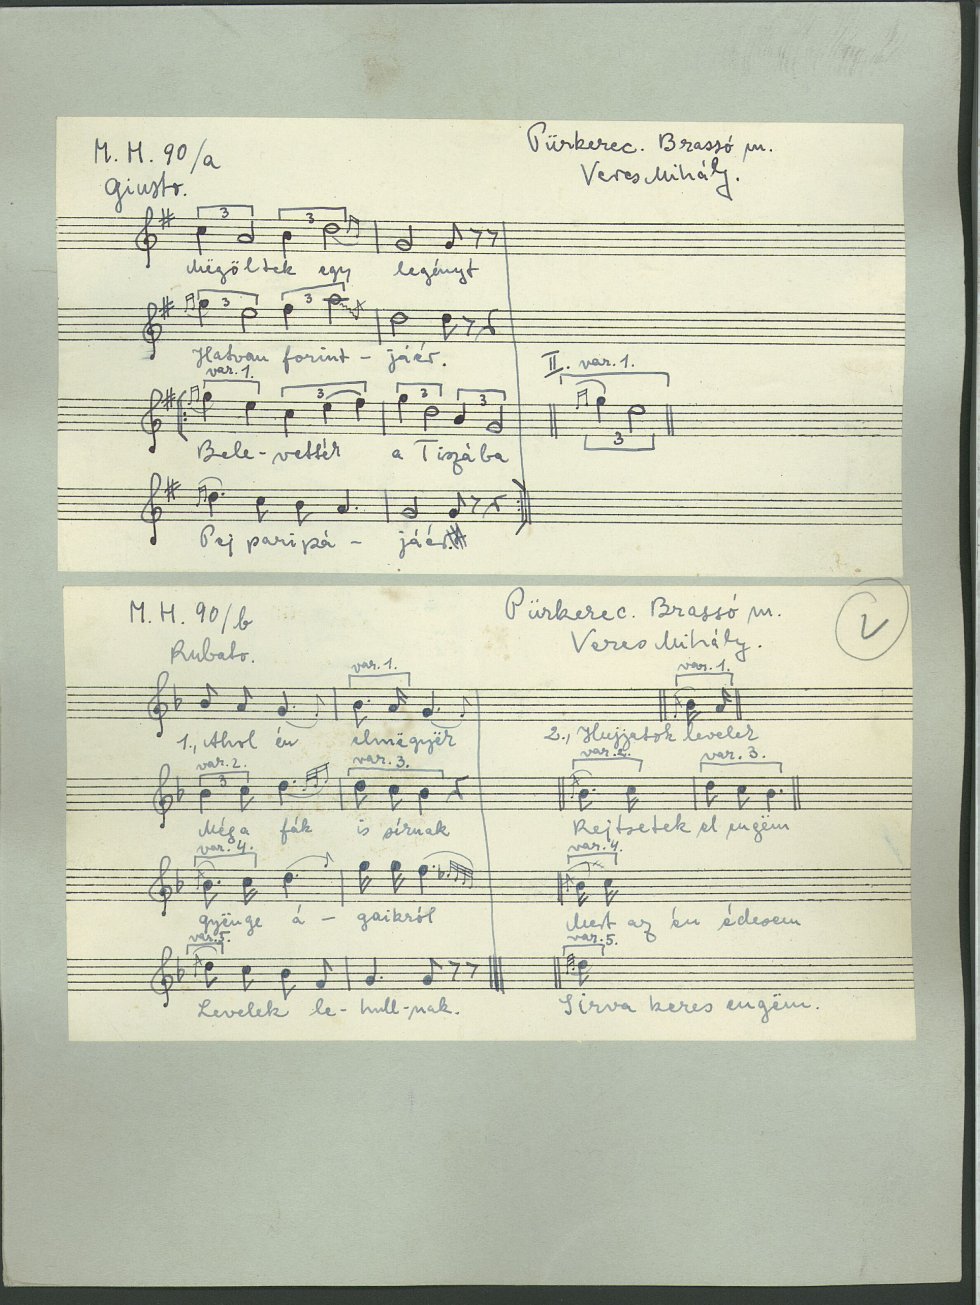 M. H. 90/a
Pürkerec. Brassó m.
Giusto.
Veres Mihály.
3 3
Mëgöltek egy legényt
3 3
Hatvan forint - jáér.
var. 1.
II. var. 1.
3 3 3
3
Bele-vettér a Tiszába
Pej paripá - jáér.
M. H. 90/b
Pürkerec. Brassó m.
Rubato.
Veres Mihály.
var. 1. var. 1.
1., Ahol én elmëgyëk 2., Hujjatok levelek
var. 2. var. 3. var. 2. var. 3.
3
Még a fák is sírnak Rejtsetek el engëm
var. 4. var. 4.
gyënge á - gaikról Mert az én édesem
var. 5. var. 5.
Levelek le-hull-nak. Sirva keres engëm.